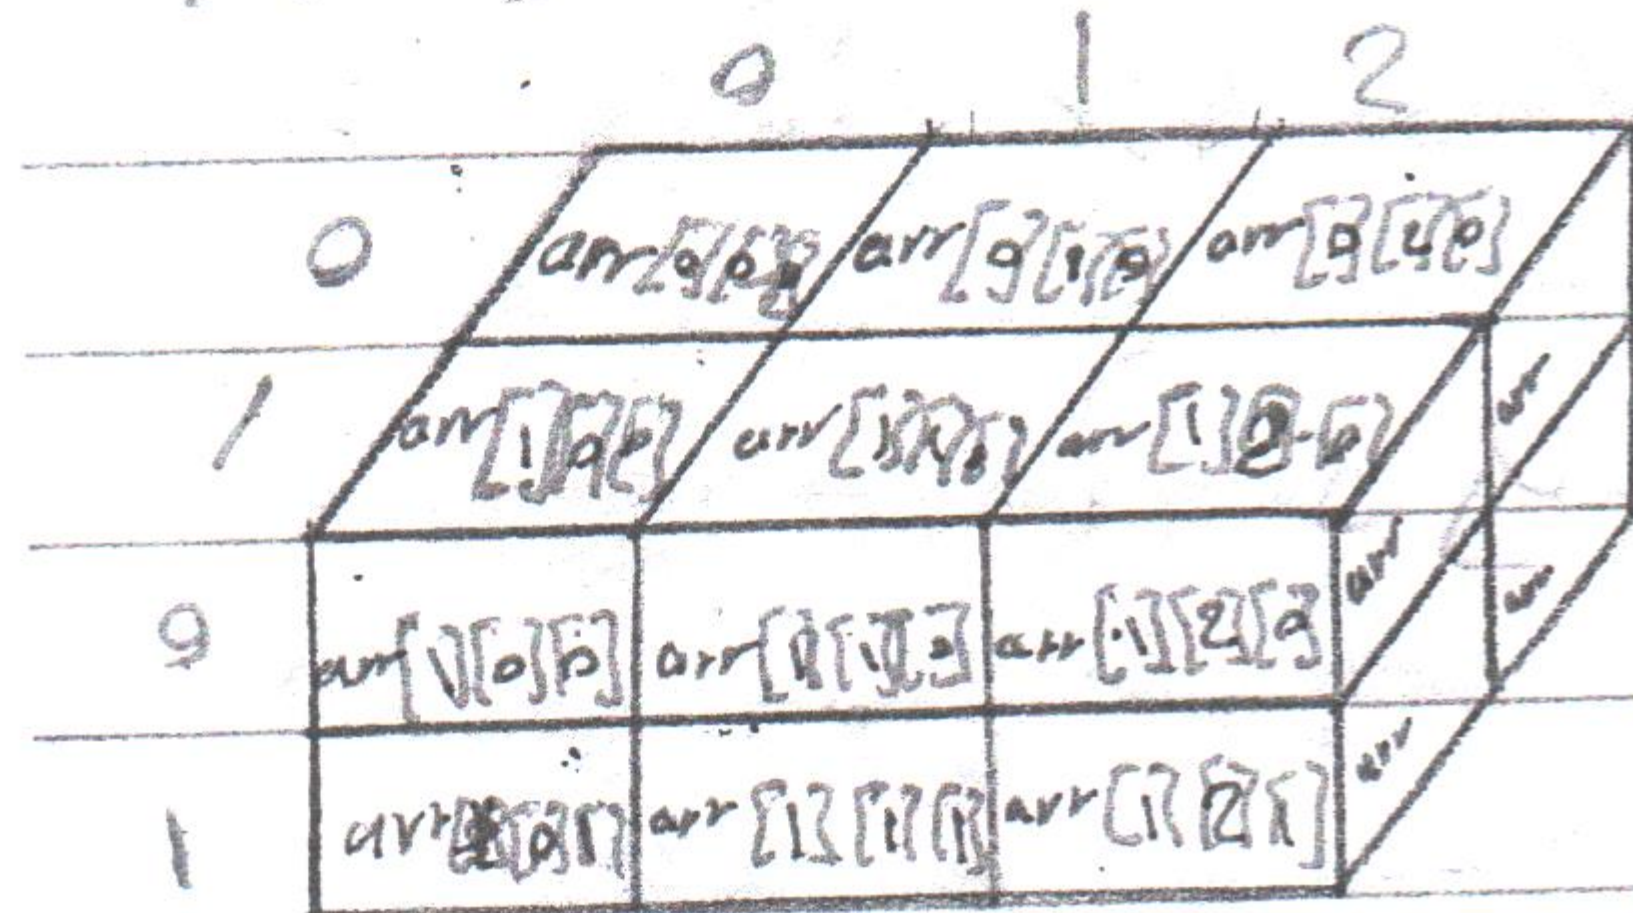 0 1 2
0 arr[0][0][0] arr[0][1][0] arr[0][2][0]
1 arr[1][0][0] arr[1][1][0] arr[1][2][0]
arr
0 arr[1][0][0] arr[1][1][0] arr[1][2][0] arr arr
1 arr[1][0][1] arr[1][1][1] arr[1][2][1] arr